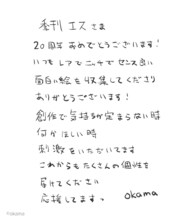 季刊 エス さま
20周年 おめでとうございます!
いつも レアで ニッチで センス良い
面白い絵を 収集してくださり
ありがとうございます!
創作で 気持ちが定まらない時
何かほしい時
刺激をいただいてます
これからもたくさんの個性を
届けてください
応援してますっ okama
©okama